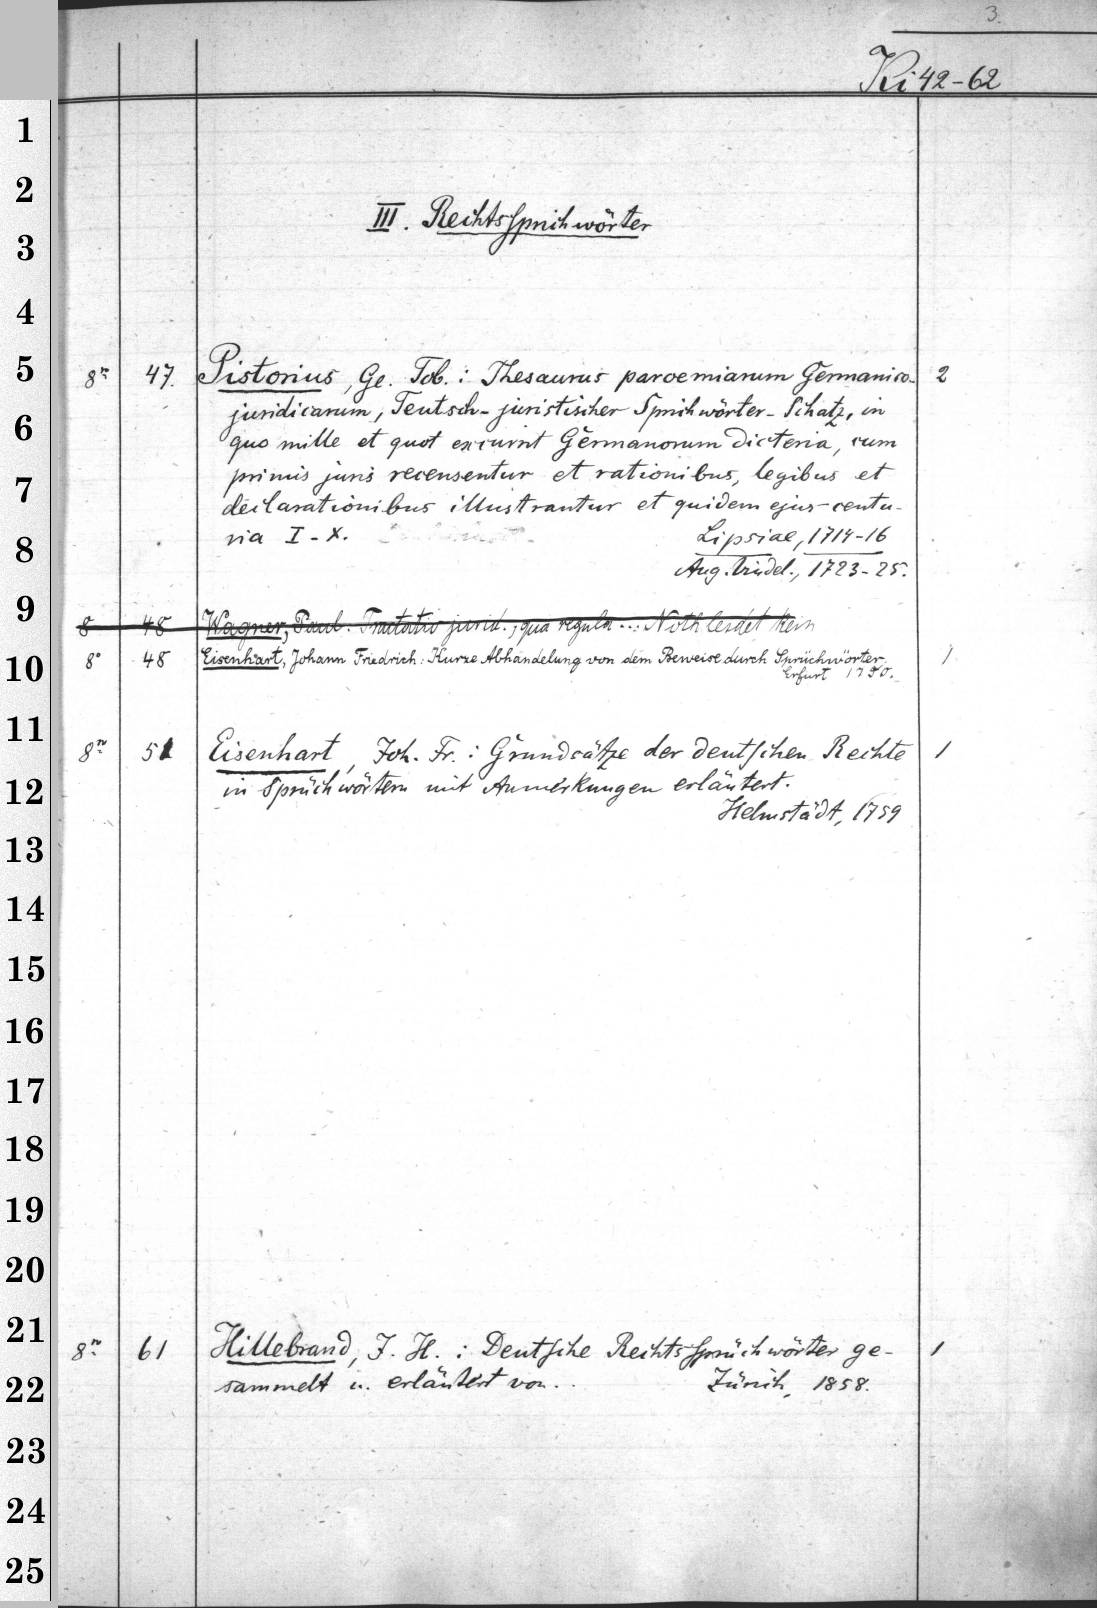 3.
Ki 42-62
III. Rechtssprichwörter
8º 47. Pistorius, Ge. Tob.: Thesaurus paroemiarum Germanico- 2
juridicarum, Teutsch-juristischer Sprichwörter-Schatz, in
quo mille et quot excurrit Germanorum dicteria, cum
primis juris recensentur et rationibus, legibus et
declarationibus illustrantur et quidem ejus centu-
ria I-X. Lipsiae, 1714-16
Aug. Vindel., 1723-25.
8 48 Wagner, Paul: Tractatio jurid., qua regula ...: Noth leidet kein
8º 48 Eisenhart, Johann Friedrich: Kurze Abhandelung von dem Beweise durch Sprüchwörter. 1
Erfurt 1750.
8º 51 Eisenhart, Joh. Fr.: Grundsätze der deutschen Rechte 1
in Sprüchwörtern mit Anmerkungen erläutert.
Helmstädt, 1759
8º 61 Hillebrand, J. H.: Deutsche Rechtssprüchwörter ge- 1
sammelt u. erläutert von.. Zürich, 1858.
1
2
3
4
5
6
7
8
9
10
11
12
13
14
15
16
17
18
19
20
21
22
23
24
25